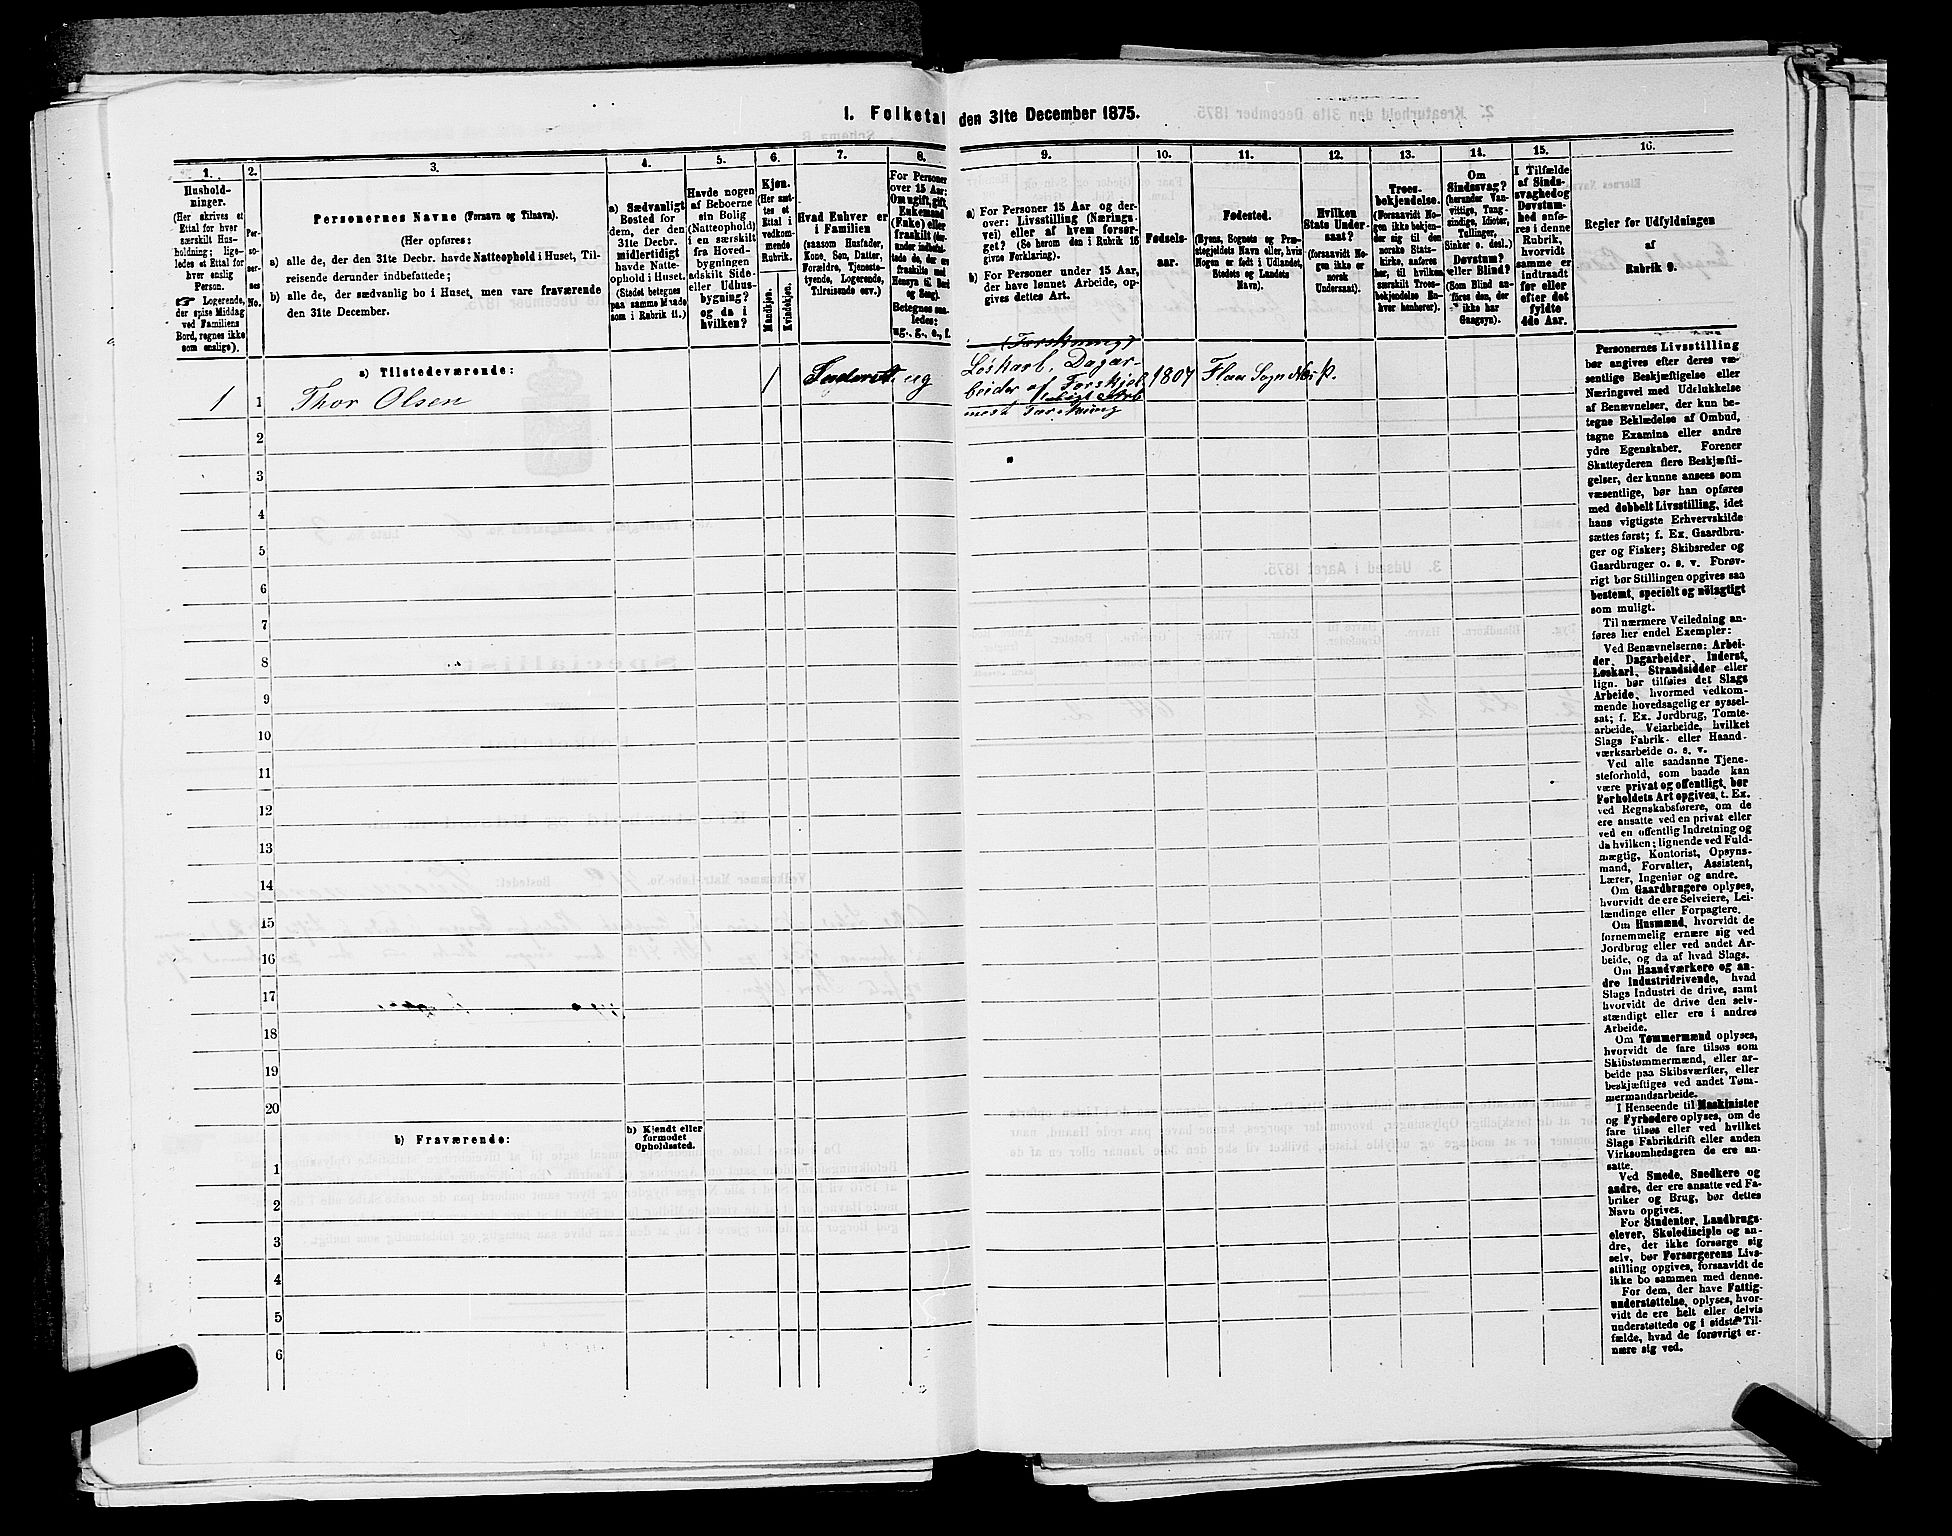 1. Folketal den 31te December 1875.
1.
Hushold-
ninger.
(Her skrives et
Ettal for hver
særskilt Hus-
holdning; lige-
ledes et Ettal for
hver enslig
Person.
☛ Logerende,
der spise Middag
ved Familiens
Bord, regnes ikke
som enslige).
2.
Per-
so-
ner-
nes
No.
3.
Personernes Navne (Fornavn og Tilnavn).
(Her opføres:
a) alle de, der den 31te Decbr. havde Natteophold i Huset, Til-
reisende derunder indbefattede;
b) alle de, der sædvanlig bo i Huset, men vare fraværende
den 31te December.
4.
a) Sædvanligt
Bosted for
dem, der den
31te Decbr.
midlertidigt
havde Natte-
ophold i Huset.
(Stedet betegnes
paa samme Maade
som i Rubrik 11.)
5.
Havde nogen
af Beboerne
sin Bolig
(Natteophold)
i en særskilt
fra Hoved-
bygningen
adskilt Side-
eller Udhus-
bygning?
og da i
hvilken?
6.
Kjøn.
(Her sæt-
tes et
Ettal i
vedkom-
mende
Rubrik.
Mandkjøn.
Kvindekjøn.
7.
Hvad Enhver er
i Familien
(saasom Husfader,
Kone, Søn, Datter,
Forældre, Tjeneste-
tyende, Logerende,
Tilreisende osv.)
8.
For Personer
over 15 Aar:
Om ugift, gift,
Enkemand
(Enke) eller
fraskilt
Betegnes saa-
ledes:
ug., g., e., f.
9.
a) For Personer 15 Aar og der-
over: Livsstilling (Nærings-
vei) eller af hvem forsør-
get? (Se herom den i Rubrik 16
givne Forklaring).
b) For Personer under 15 Aar,
der have lønnet Arbeide, op-
gives dettes Art.
10.
Fødsels-
aar.
11.
Fødested.
(Byens, Sognets og Præ-
stegjeldets Navn eller, hvis
Nogen er født i Udlandet,
Stedets og Landets
Navn).
12.
Hvilken
Stats Under-
saat?
(forsaavidt No-
gen ikke er
norsk
Undersaat).
13.
Troes-
bekjendelse.
(Forsaavidt No-
gen ikke bekjen-
der sig til den
norske Stats-
kirke, anføres
her, til hvilken
særskilt Troes-
bekjendelse En-
hver henhører).
14.
Om
Sindssvag?
(herunder Van-
vittige, Tung-
sindige, Idioter,
Tullinger,
Sinker o. desl.)
Døvstum?
eller Blind?
(Som Blind an-
føres den, der
ikke har
Gangsyn).
15.
I Tilfælde
af Sinds-
svaghed og
Døvstum-
hed anfø-
res i denne
Rubrik,
hvorvidt
samme er
indtraadt
før eller
efter det
fyldte
4de Aar.
16.
Regler for Udfyldningen
af
Rubrik 9.
a) Tilstedeværende:
1 1 Thor Olsen 1 ug 1807 Flaa Sogn
Løskarl, Dagar-
beider af
2
3
4
5
6
7
8
9
10
11
12
13
14
15
16
17
18
19
20
b) Fraværende:
b) Kjendt eller
formodet
Opholdssted.
1
2
3
4
5
6
Personernes Livsstilling
bør angives efter deres væ-
sentlige Beskjæftigelse eller
Næringsvei med Udelukkelse
af Benævnelser, der kun be-
tegne Beklædelse af Ombud,
tagne Examina eller andre
ydre Egenskaber. Forener
Skatteyderen flere Beskjæfti-
gelser, der kunne ansees som
væsentlige, bør han opføres
med dobbelt Livsstilling, idet
hans vigtigste Erhvervskilde
sættes først; f. Ex. Gaardbru-
ger og Fisker; Skibsreder og
Gaardbruger o. s. v. Forøv-
rigt bør Stillingen opgives saa
bestemt, specielt og nøiagtigt
som muligt.
Til nærmere Veiledning an-
føres her endel Exempler:
Ved Benævnelserne: Arbei-
der, Dagarbeider, Inderst,
Løskarl, Strandsidder eller
lign. bør tilføies det Slags
Arbeide, hvormed vedkom-
mende hovedsagelig er syssel-
sat; f. Ex. Jordbrug, Tomte-
arbeide, Veiarbeide, hvilket
Slags Fabrik- eller Haand-
værksarbeide o. s. v.
Ved alle saadanne Tjene-
steforhold, som baade kan
være privat og offentligt, bør
Forholdets Art opgives, t. Ex.
ved Regnskabsførere, om de
ere ansatte ved en privat eller
ved en offentlig Indretning og
da hvilken; lignende ved Fuld-
mægtig, Kontorist, Opsyns-
mand, Forvalter, Assistent,
Lærer, Ingeniør og andre.
Om Gaardbrugere oplyses,
hvorvidt de ere Selveiere, Lei-
lændinge eller Forpagtere.
Om Husmænd, hvorvidt de
fornemmelig ernære sig ved
Jordbrug eller ved andet Ar-
beide, og da af hvad Slags.
Om Haandværkere og an-
dre Industridrivende, hvad
Slags Industri de drive, samt
hvorvidt de drive den selv-
stændigt eller ere i andres
Arbeide.
Om Tømmermænd oplyses,
hvorvidt de fare tilsøs som
Skibstømmermænd, eller ar-
beide paa Skibsværfter, eller
beskjæftiges ved andet Tøm-
mermandsarbeide.
I Henseende til Maskinister
og Fyrbødere oplyses, om de
fare tilsøs eller ved hvilket
Slags Fabrikdrift eller anden
Virksomhedsgren de ere an-
satte.
Ved Smede, Snedkere og
andre, der ere ansatte ved Fa-
briker og Brug, bør dettes
Navn opgives.
For Studenter, Landbrugs-
elever, Skoledisciple og an-
dre, der ikke forsørge sig
selv, bør Forsørgerens Livs-
stilling opgives, forsaavidt de
ikke bo sammen med denne.
For dem, der have Fattig-
understøttelse, oplyses, hvor-
vidt de ere helt eller delvis
understøttede og i sidste Til-
fælde, hvad de forøvrigt er-
nære sig ved.